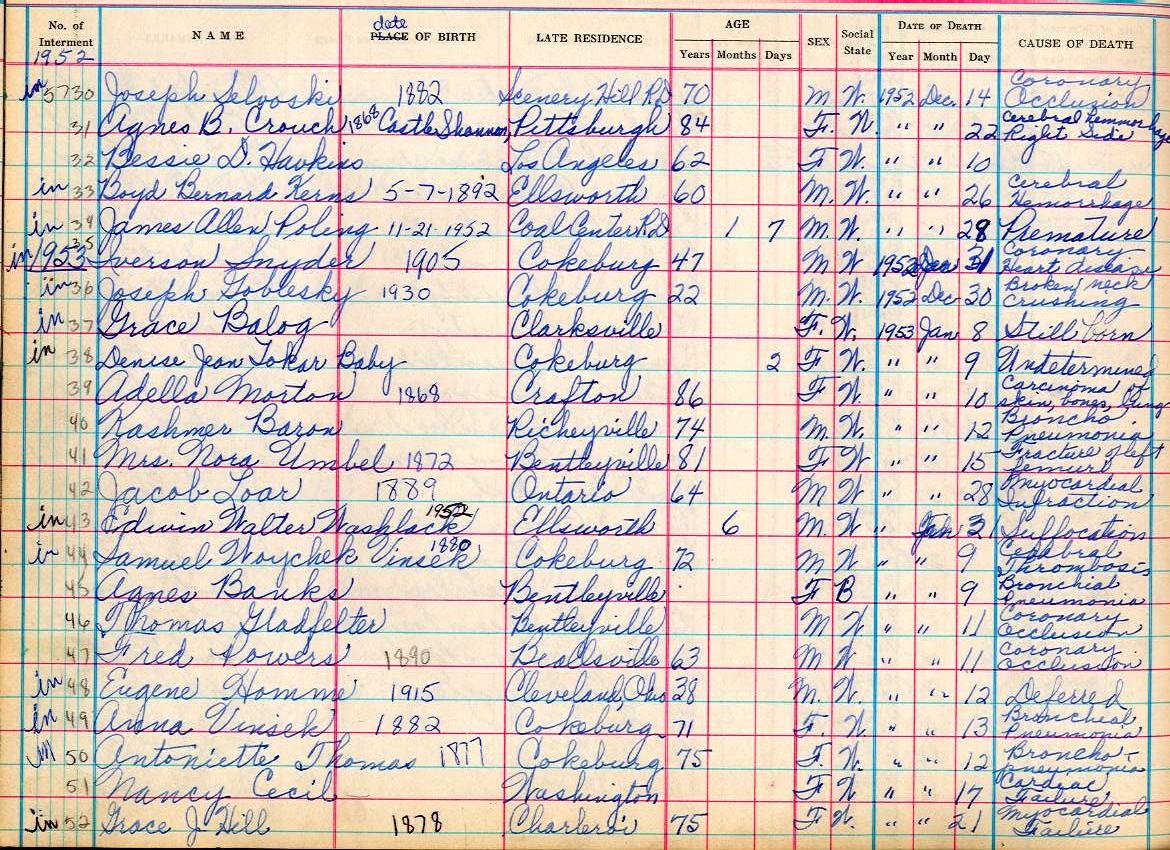 No. of Interment NAME date PLACE OF BIRTH LATE RESIDENCE AGE Years Months Days SEX Social State DATE OF DEATH Year Month Day CAUSE OF DEATH
1952
in 5730 Joseph Selvoski 1882 Scenery Hill R.D. 70 M W. 1952 Dec. 14 Coronary Occlusion
31 Agnes B. Crouch 1868 Castle Shannon, Pittsburgh 84 F. W. " " 22 Cerebral Hemmorhage Right Side
32 Bessie D. Hawkins Los Angeles 62 F W. " " 10
in 33 Boyd Bernard Kerns 5-7-1892 Ellsworth 60 M. W. " " 26 Cerebral Hemorrhage
in 34 James Allen Poling 11-21-1952 Coal Center R.D 1 7 M. W. " " 28 Premature
in 1953 35 Iverson Snyder 1905 Cokeburg 47 M W 1952 Dec 31 Coronary Heart disease
in 36 Joseph Goblesky 1930 Cokeburg 22 M. W. 1952 Dec 30 Broken neck crushing
in 37 Grace Balog Clarksville F. W. 1953 Jan 8 Still born
in 38 Denise Jean Tokar Baby Cokeburg 2 F W. " " 9 Undetermined
39 Adella Morton 1868 Crafton 86 F W. " " 10 Carcinoma of skin, bones, lung
40 Kashmer Baron Richeyville 74 M. W. " " 12 Broncho Pneumonia
41 Mrs. Nora Umbel 1872 Bentleyville 81 F W " " 15 Fracture of left femur
42 Jacob Loar 1889 Ontario 64 M W " " 28 Myocardial Infraction
in 43 Edwin Walter Washlack 1952 Ellsworth 6 M. W " Jan 31 Suffocation
in 44 Samuel Woychek Vinsek 1880 Cokeburg 72 M W " " 9 Cerebral Thrombosis
45 Agnes Banks Bentleyville F B " " 9 Bronchial Pneumonia
46 Thomas Gladfelter Bentleyville M W " " 11 Coronary Occlusion
47 Fred Powers 1890 Beallsville 63 M W " " 11 Coronary Occlusion
in 48 Eugene Homme 1915 Cleveland, Ohio 38 M. W. " " 12 Deferred
in 49 Anna Vinsek 1882 Cokeburg 71 F. W. " " 13 Bronchial Pneumonia
in 50 Antoniette Thomas 1877 Cokeburg 75 F. W. " " 12 Broncho-pneumonia
51 Nancy Cecil Washington F W " " 17 Cardiac Failure
in 52 Grace J. Hill 1878 Charleroi 75 F W. " " 21 Myocardial Failure